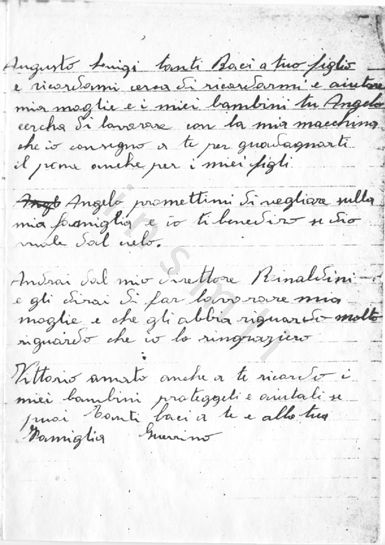 Augusto Luigi tanti Baci a tuo figlio
e ricordami cerca di ricordarmi e aiutare
mia moglie e i miei bambini tu Angelo
cercha di lavorare con la mia macchina
che io consegno a te per guadagnarti
il pane anche per i miei figli
Angelo promettimi di vegliare sulla
mia famiglia e io ti benediro se dio
vuole dal cielo.
Andrai dal mio direttore Rinaldini
e gli dirai di far lavorare mia
moglie e che gli abbia riguardo molto
riguardo che io lo ringraziero
Vittorio amato anche a te ricordo i
miei bambini proteggeli e aiutali se
puoi Tanti baci a te e alla tua
Famiglia Guerrino